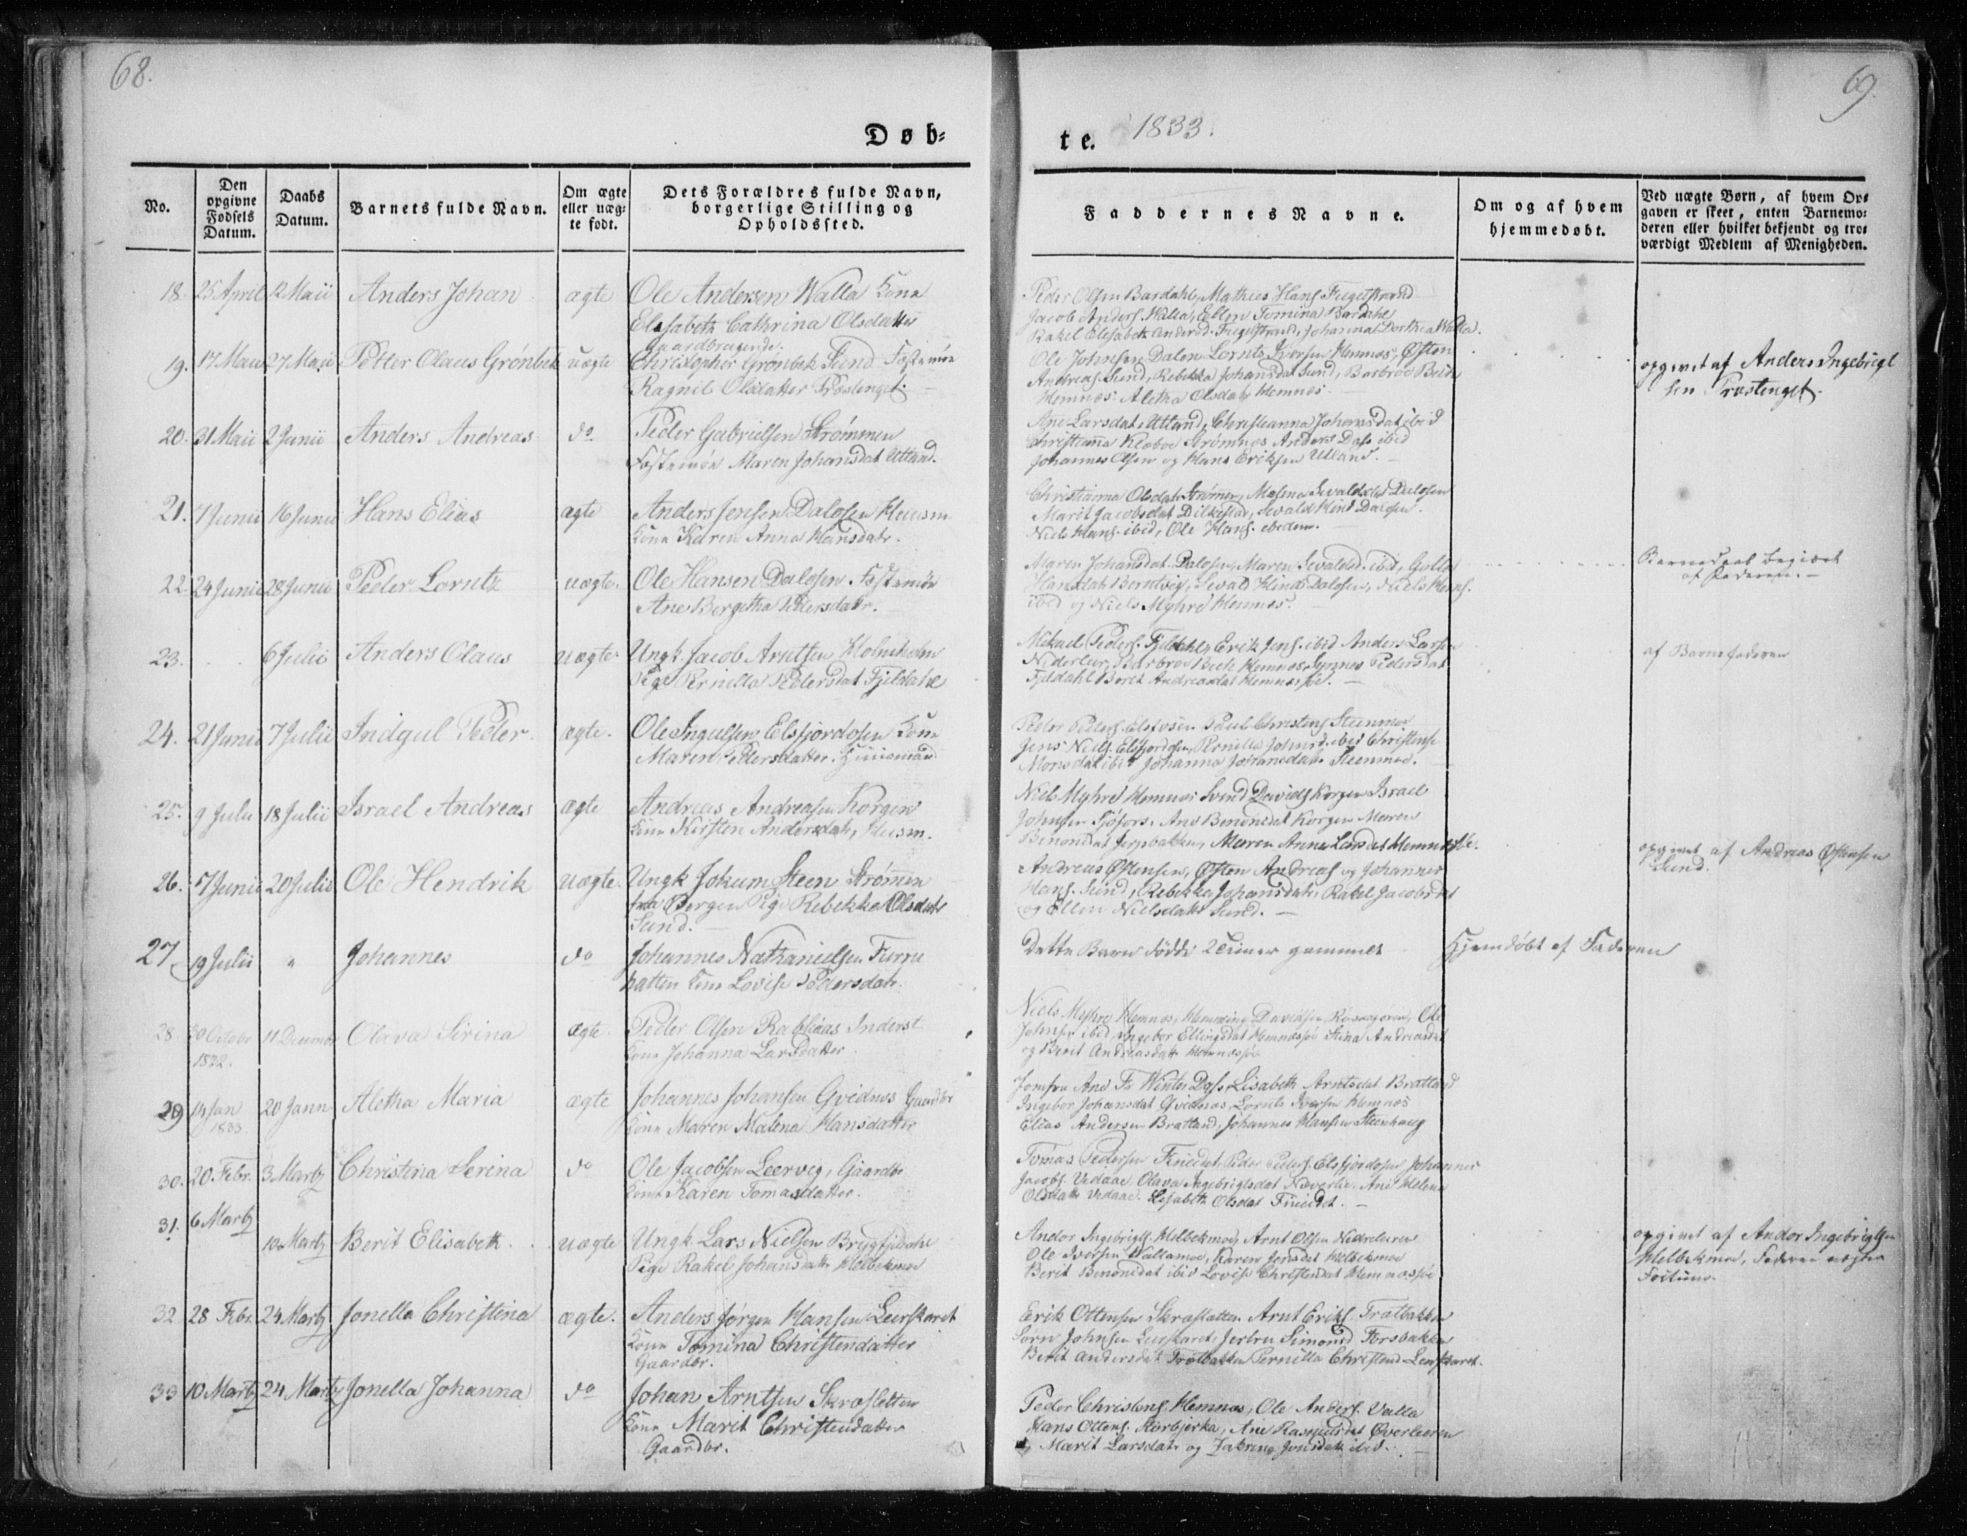 68.
69.
Døb-
te. 1833.
No.
Den opgivne Fødsels Datum.
Daabs Datum.
Barnets fulde Navn.
Om ægte eller uæg- te født.
Dets Forældres fulde Navn, borgerlige Stilling og Opholdssted.
Faddernes Navne.
Om og af hvem hjemmedøbt.
Ved uægte Børn, af hvem Op- gaven er skeet, enten Barnemo- deren eller hvilket bekjendt og tro- værdigt Medlem af Menigheden.
18. 25 April 12 Maii Anders Johan ægte Ole Andersen Walla Kone
Elisabeth Cathrina Olsdatter
Gaardbrugende.
Peder Olsen Bardahl, Mathies Hans
Jacob Anders. Walla, Ellen Tomina Bardahl
Rakel Elisabeth Johanna Dorthea Walla.
19. 17 Maii 27 Maii Petter Olaus Grønbek uægte Christopher Grønbek Sund Fæstemøe
Ragnil Olsdatter Præstenget.
Ole Johnsen Dalen Lornts Iversen Hemnes, Østen
Andreas. Sund, Rebekka Johansdat Sund, Barbroe Bech
Hemnæs. Aletha Olsdatr Hemnes.
opgivet af Anders Ingebrigt
sen Præstenget.
20. 31 Maii 2 Junii Anders Andreas do Peder Gabrielsen Strømmen
Fæstemøe Maren Johansdat Utland.
Ane Larsdat. Utland, Christianna Johansdat ibid
Christianna Klæboe Strømnes Anders Dass ibid
Johannes Olsen og Hans Eriksen Utland.
21. 7 Junii 16 Junii Hans Elias ægte Anders Jensen Dalosen Huusm
Kone Karen Anna Hansdatr.
Christianna Olsdat. Strømen, Dalosen
Marit Jacobsdat Sevald Hind Dalosen.
Niels Hans. ibid, Ole Hans. ibidem.
22. 24 Junii 28 Junii Peder Lorntz uægte. Ole Hansen Dalosen Fæstemøe
Ane Bergitha Pedersdatr.
Maren Johansdat. Dalosen, Maren Sevaldsd. ibid,
Hansdat Sevald Hind Dalosen, Niels Hans.
ibid og Niels Myhre Hemnes.
af Faderen.
23. 6 Julii Anders Olaus uægte Ungk. Jacob Arntsen Holmholm
Pige Pernilla Pedersdat Fjeldahl
Mikael Peders. Fjeldahl, Erik Jens. ibid Anders Larsen
Nederleer, Barbroe Bech Hemnes, Synnes Pedersdat
Fjeldahl Beret Andreasdat Hemnessøe.
af Barnefaderen
24. 21 Junii 7 Julii Indgul Peder ægte. Ole Ingulsen Elsfjordosen Kone
Maren Pedersdatter. Huusmand
Peder Peders. Paul Christens Steenmoe
Jens Niels. Elsfjordosen, Pernilla Johnsd. ibid Christense
Monsdat ibid Johanna Johansdatr Steenmoe.
25. 9 Julii 18 Julii Israel Andreas ægte Andreas Andreasen Korgen
Kone Kirsten Andersdatr, Huusm.
Niels Myhre Hemnes Svend Davids Korgen Israel
Johnsen Sjøfors. Ane Benonidat Korgen Maren
Benonidat Maren Anna Larsdat Hemnessøe.
26. 17 Junii 20 Julii Ole Hendrik uægte. Ungk Jokum Steen Strømen
fra Bergen Pige Rebekka Olsdatr
Sund.
Andreas Østensen, Østen Andreas. og Johannes
Hans. Sund, Rebekka Johansdatr, Rakel Jacobsdat
og Ellen Nielsdatr Sund.
opgivet af Andreas Østensen
Sund.
27. 19 Julii " Johannes do Johannes Nathanielsen Furru
hatten Kone Lovise Pedersdatr.
Dette Barn døde 2 Timer gammelt
Hjemdøbt af Faderen
28. 30 October 1832. 11 December Olava Sirina ægte. Peder Olsen Rabliaas Inderst
Kone Johanna Larsdatter.
Niels Myhre Hemnes, Hemming Davidsen Ole
Johnsen ibid Ingebor Ellingsdat Hemnessøe Stina Andreasdat
og Berit Andreasdatr Hemnessøe
29 14 Jan 1833. 20 Jann Aletha Maria ægte Johannes Johansen Qvidnes Gaardbr
Kone Maren Malena Hansdatter
Jomfru Ane Fr Winter Dass Lisabeth Arntsdat Bratland
Ingebor Johansdat Qvidnes Lornts Iversen Hemnæs
Elias Andersen Bratland, Johannes Hansen Steenhaug
30. 20 Febr. 3 Martz Christina Serina do Ole Jacobsen Leervig, Gaardbr
Kone Karen Tomasdatter.
Tomas Pedersen Fineidet, Peder Peders. Elsfjordosen Johannes
Jacobs. Vedaae. Olava Ingebrigtsdat Ane Helena
Olsdatr Vedaae. Elisabeth Olsdat Fineidet.
31. 6 Martz 10 Martz Berit Elisabeth uægte Ungk Lars Nielsen Brygfjeldahl
Pige Rakel Johansdatr Melbekmoe
Andor Ingebrigts Melbekmoe, Arnt Olsen Nederleeren
Ole Iversen Vallamoe, Karen Jonsdat Melbekmoe
Berit Benonidat ibid Lovise Christensdat Hemnessøe
opgivet af Andor Ingebrigtsen
Melbekmoe, Faderen
32 28 Febr. 24 Martz Jonella Christina ægte. Anders Jørgen Hansen Leerskaret
Kone Tomina Christendatter
Gaardbr.
Erik Ottensen Skresletten Arnt Eriks. Trælbakken
Sørn Johnsen Leerskaret, Simonsd Forsbakken
Berit Andersdat Trælbakken Pernilla Christend Leerskaret.
33 10 Martz 24 Martz Jonella Johanna do Johan Arntsen Skresletten
Kone Marit Christendatter
Gaardbr.
Peder Christens. Hemnes, Ole Anders. Valla
Hans Ottens. Storbjerka, Ane Rasmusdat Øverleeren
Marit Larsdatr og Jonsdatr ibid.